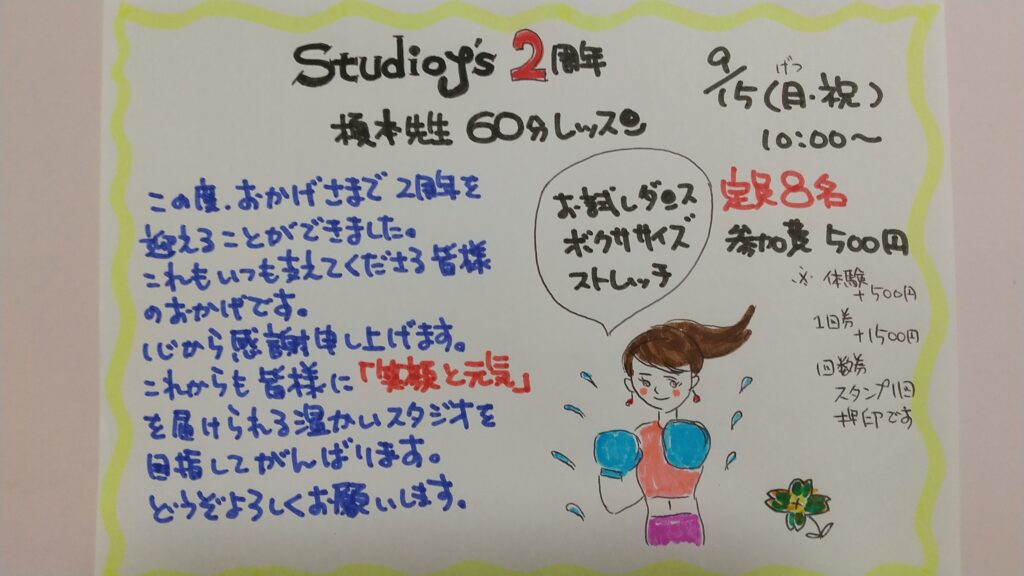 Studioy's 2周年
榎本先生 60分レッスン
9/15(月・祝)
げつ
10:00〜
この度、おかげさまで2周年を
迎えることができました。
これもいつも支えてくださる皆様
のおかげです。
心から感謝申し上げます。
これからも皆様に「笑顔と元気」
を届けられる温かいスタジオを
目指してがんばります。
どうぞよろしくお願いします。
お試しダンス
ボクササイズ
ストレッチ
定員8名
参加費 500円
※ 体験
+500円
1回券
+1500円
回数券
スタンプ1回
押印です